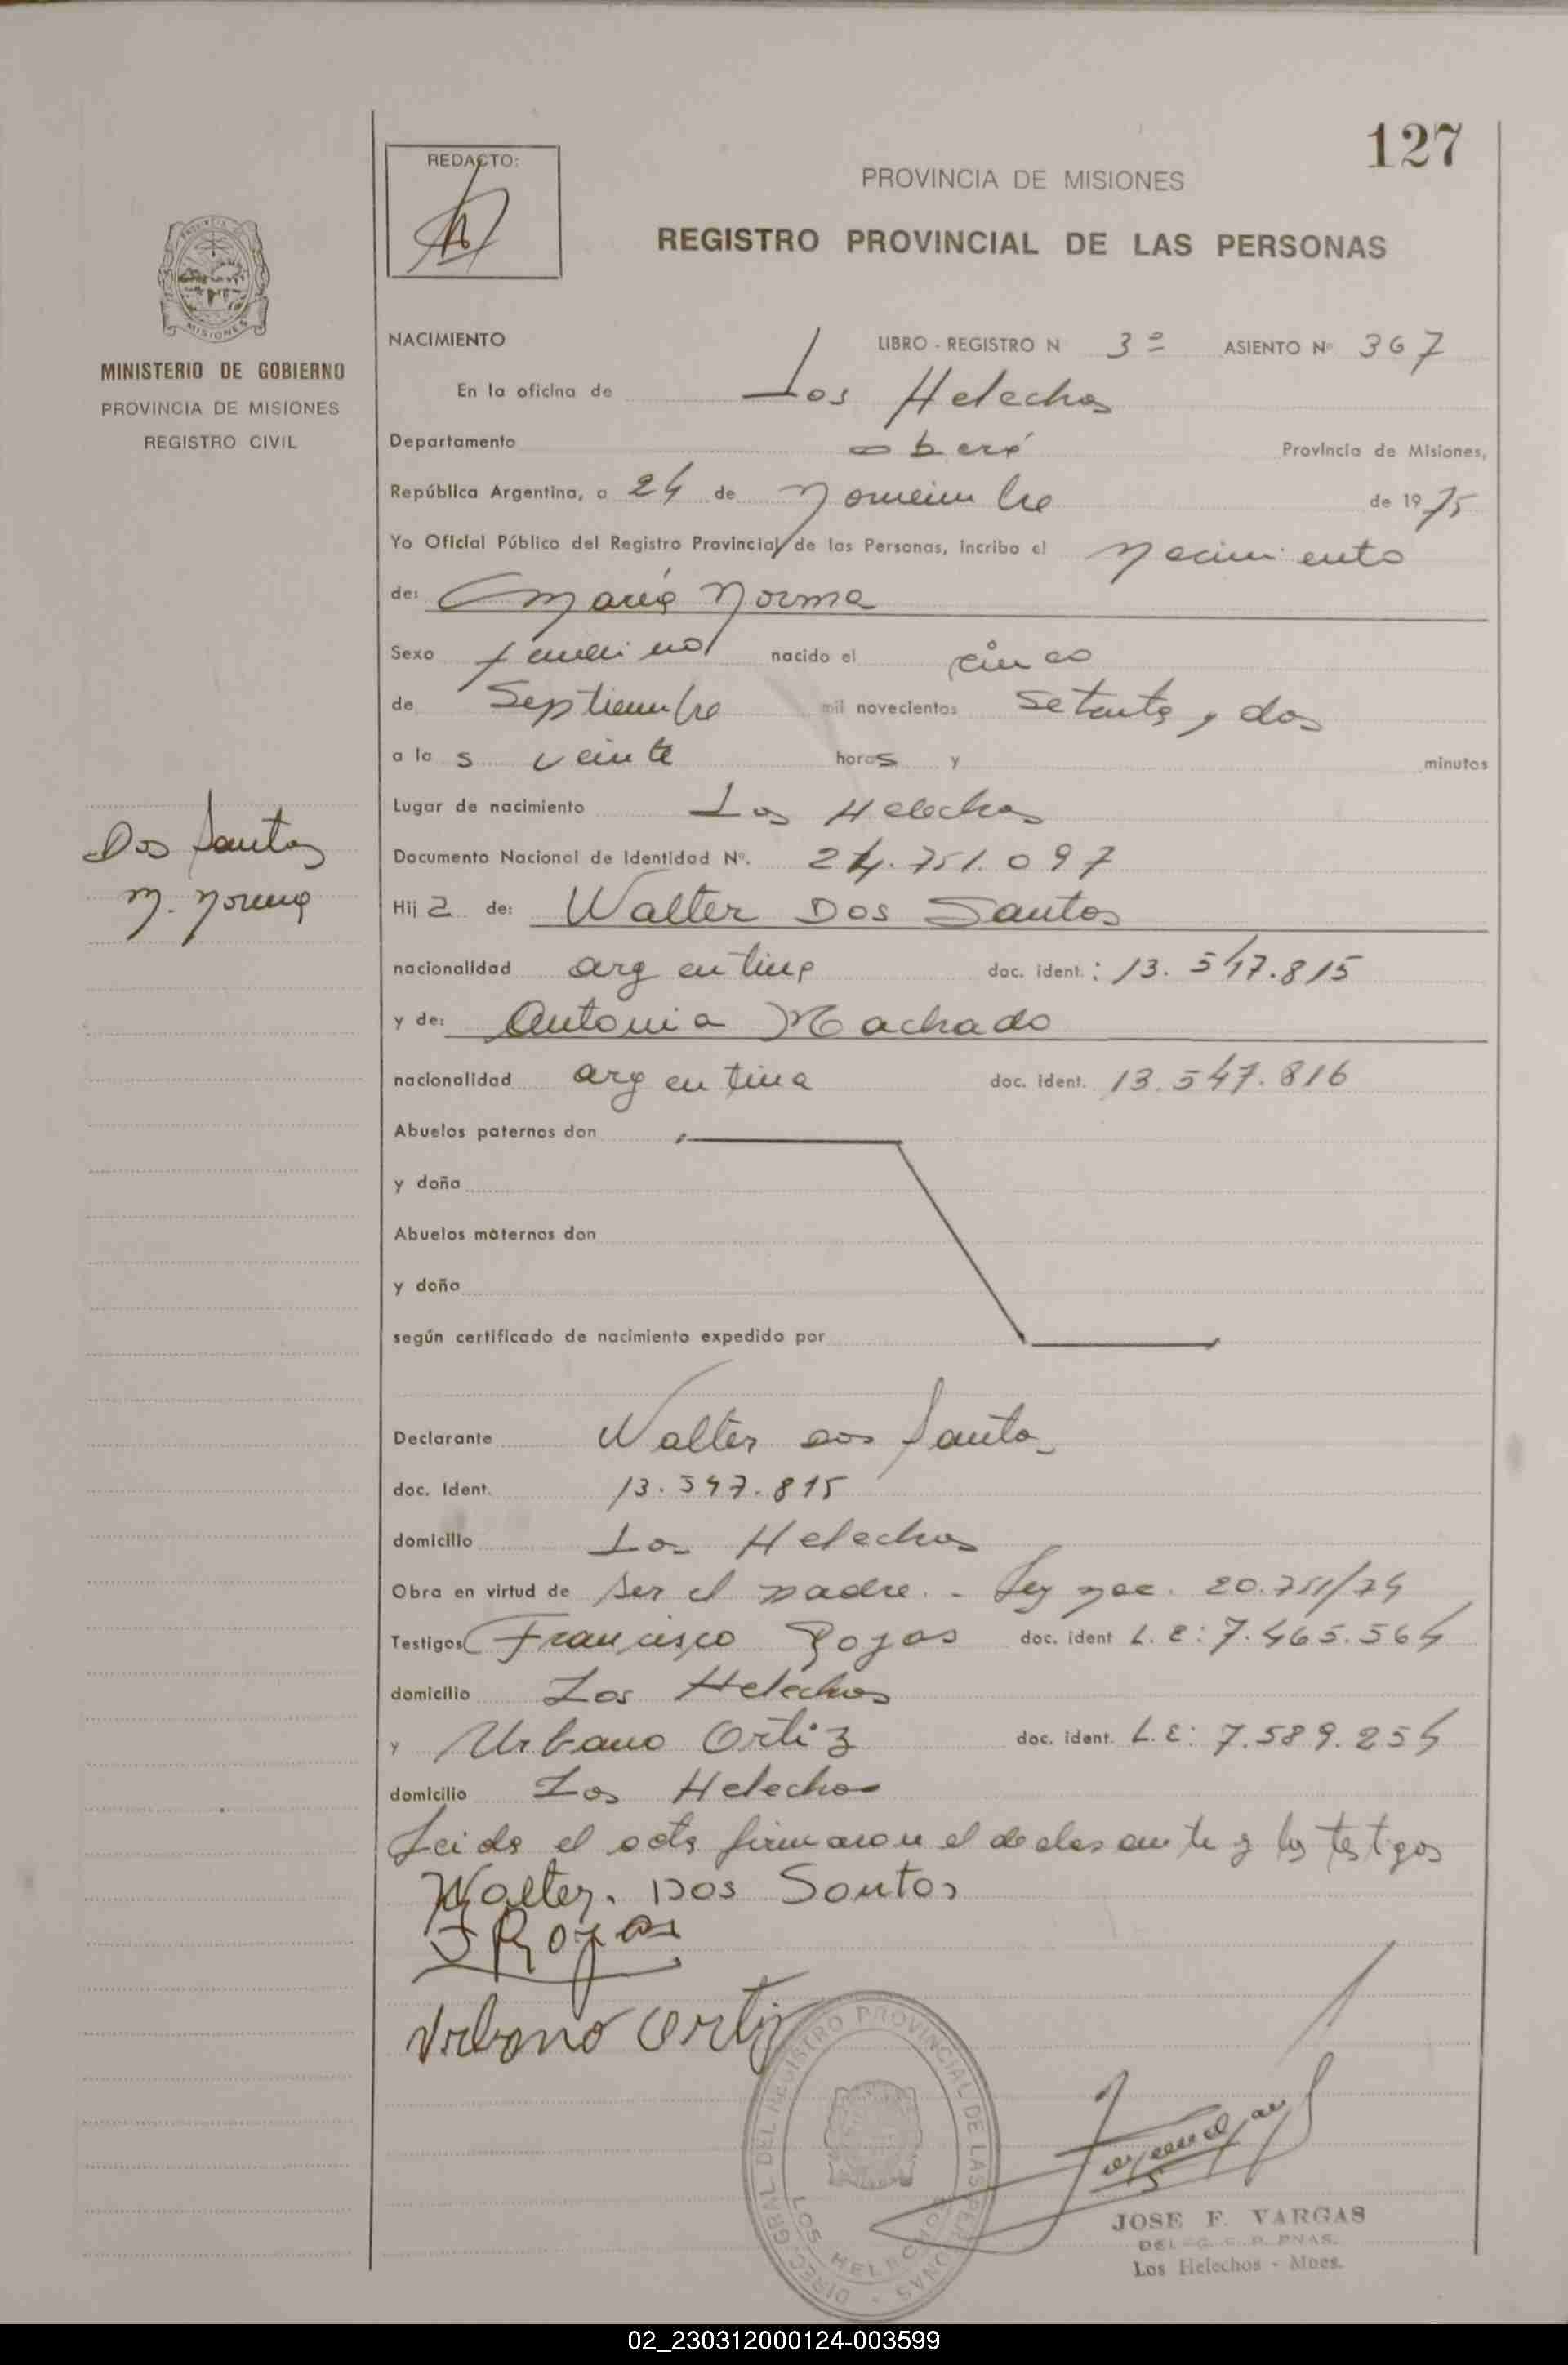 127
REDACTO:
PROVINCIA DE MISIONES
REGISTRO PROVINCIAL DE LAS PERSONAS
MISIONES
MINISTERIO DE GOBIERNO
PROVINCIA DE MISIONES
REGISTRO CIVIL
NACIMIENTO LIBRO - REGISTRO N 3º ASIENTO Nº 367
En la oficina de Los Helechos
Departamento oberá Provincia de Misiones,
República Argentina, a 24 de Noviembre de 1975
Yo Oficial Público del Registro Provincial de las Personas, incribo el Nacimiento
de: María Norma
Sexo femenino nacido el cinco
de Septiembre mil novecientos setenta y dos
a la s veinte horas y minutos
Lugar de nacimiento Los Helechos
Dos Santos
M. Norma
Documento Nacional de Identidad Nº. 24.751.097
Hij a de: Walter Dos Santos
nacionalidad argentina doc. ident.: 13.547.815
y de: Antonia Machado
nacionalidad argentina doc. ident. 13.547.816
Abuelos paternos don
y doña
Abuelos maternos don
y doña
según certificado de nacimiento expedido por
Declarante Walter dos Santos
doc. Ident. 13.547.815
domicilio Los Helechos
Obra en virtud de ser el padre. - Ley nac. 20.751/74
Testigos Francisco Rojas doc. ident L.E: 7.465.564
domicilio Los Helechos
y Urbano Ortiz doc. ident. L.E: 7.589.254
domicilio Los Helechos
Leida el acta firmaron el declarante y los testigos
Walter. Dos Santos
F Rojas
Urbano Ortiz
DIREC. GRAL. DEL REGISTRO PROVINCIAL DE LAS PERSONAS
LOS HELECHOS
JOSE F. VARGAS
Los Helechos - Mnes.
02_230312000124-003599